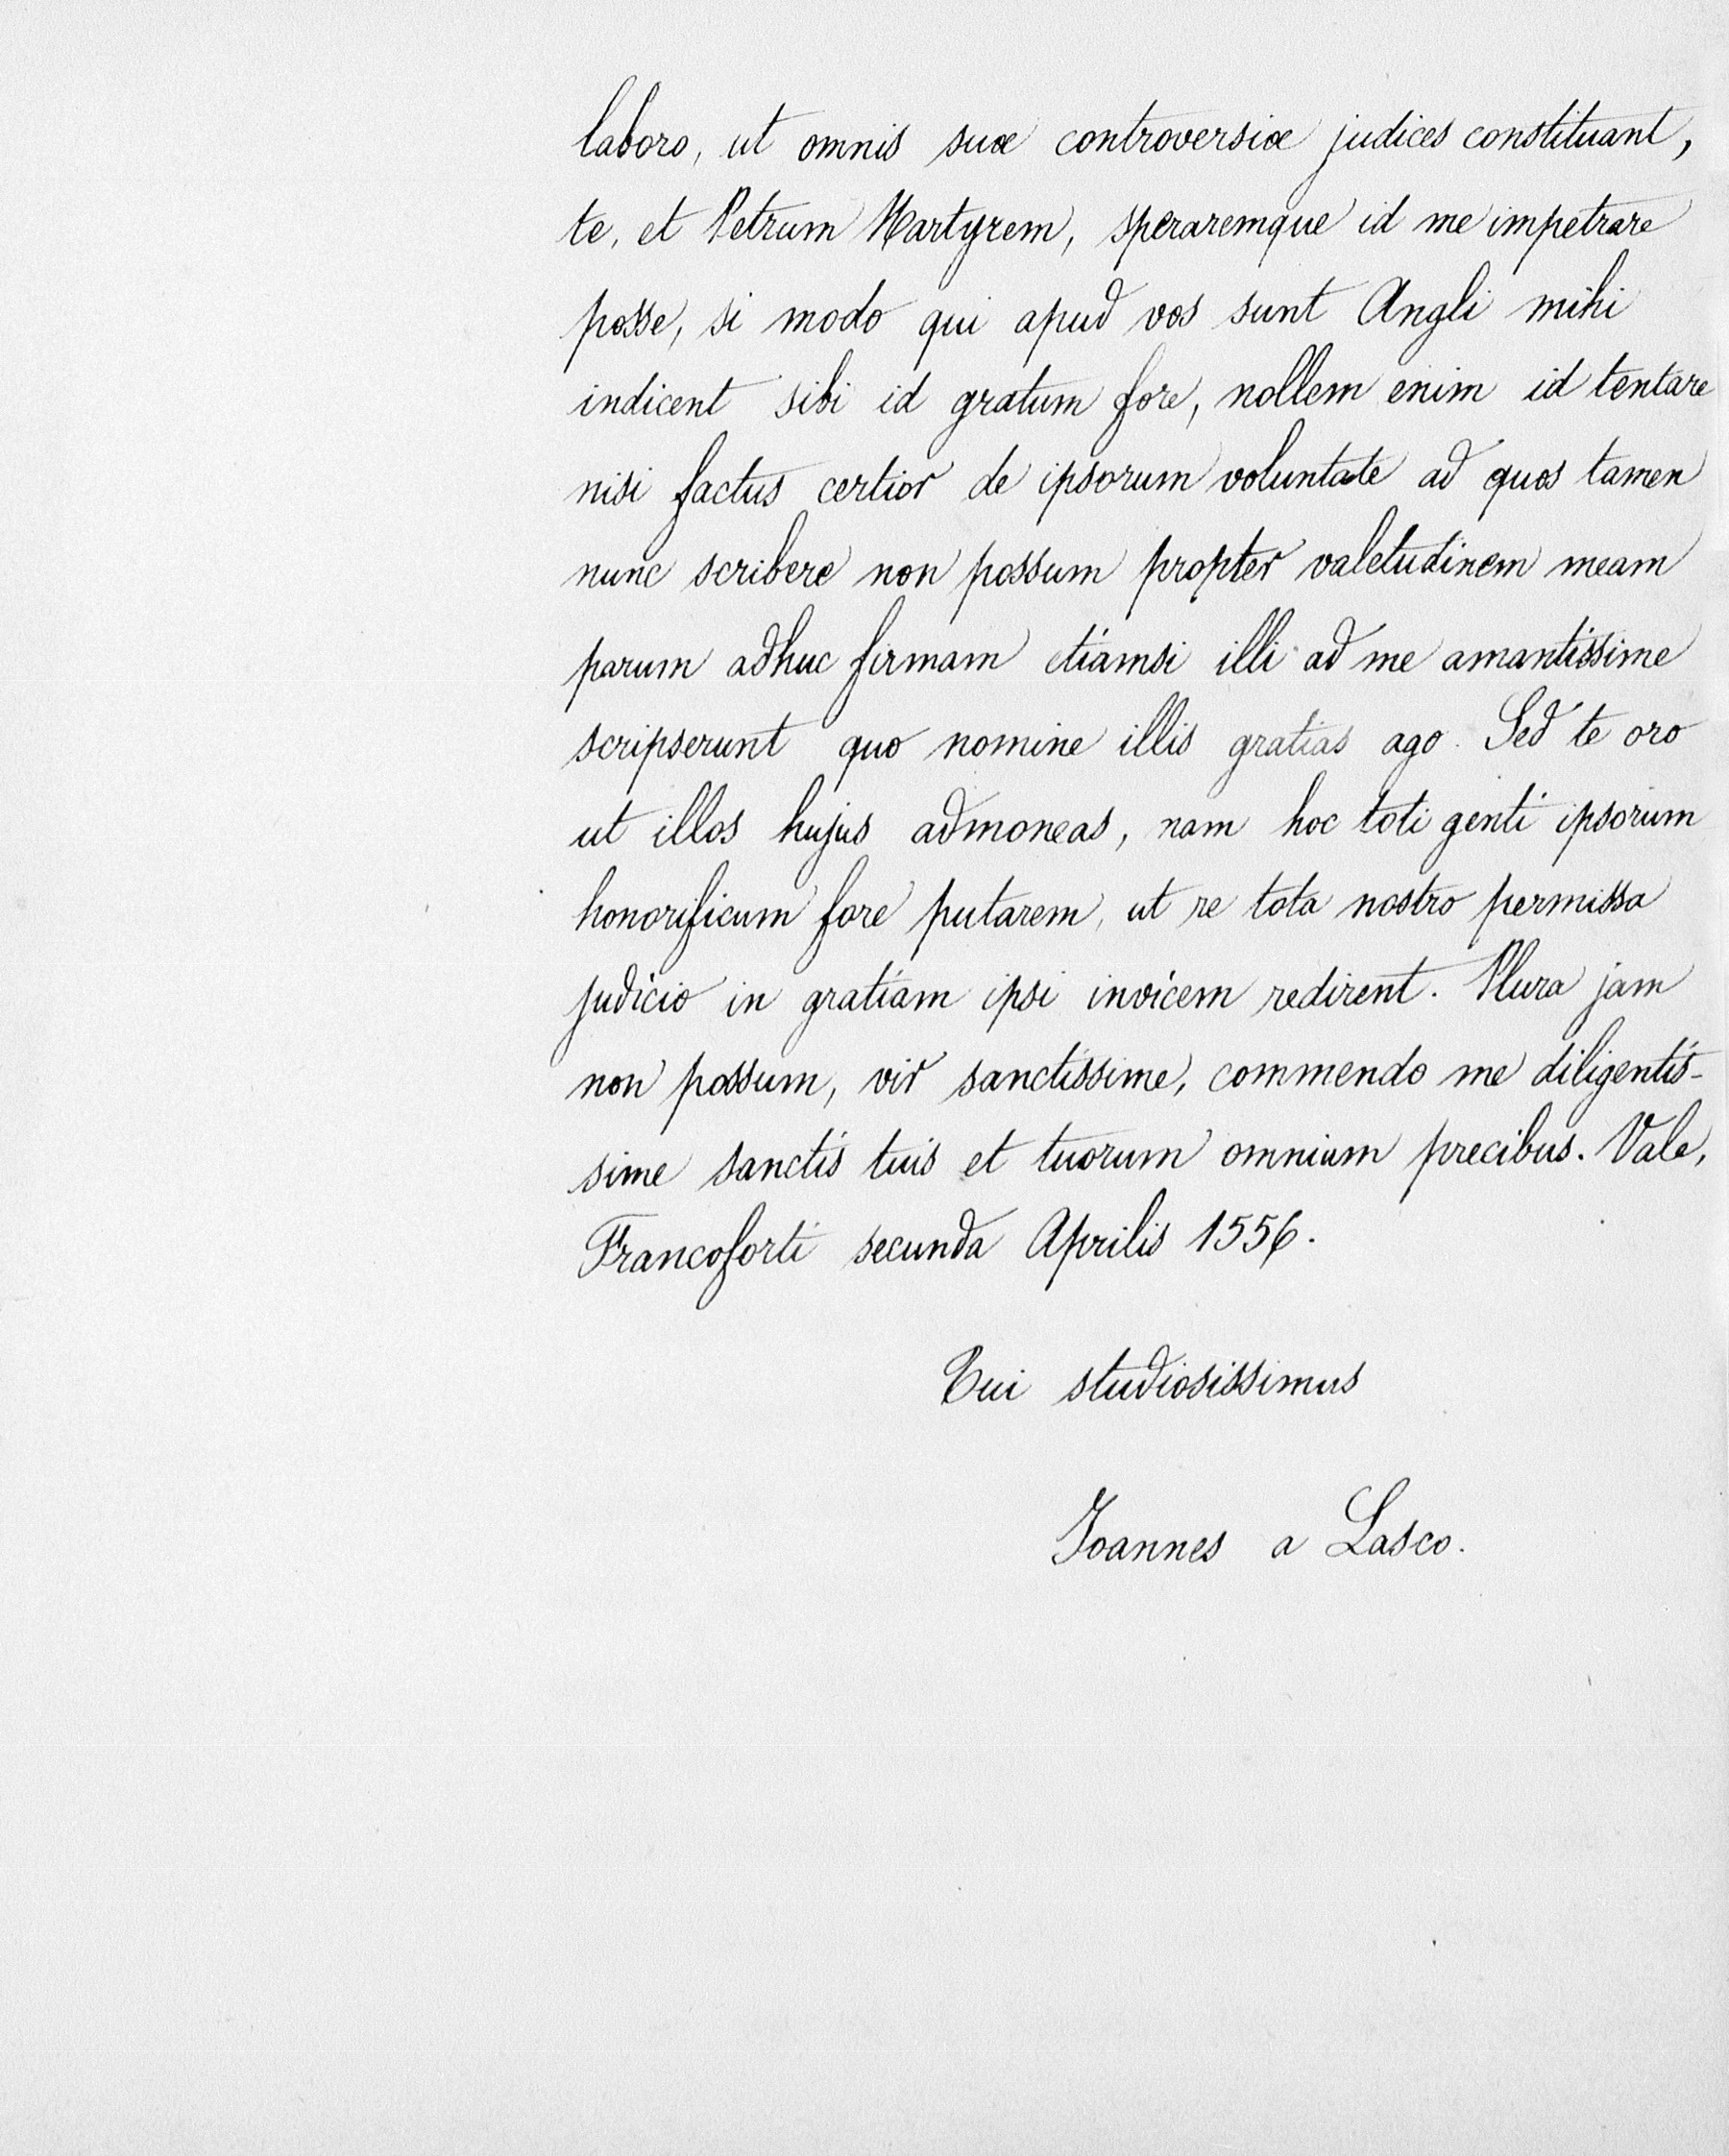 laboro, ut omnis suæ controversiæ judices constituant,
te, et Petrum Martyrem, speraremque id me impetrare
posse, si modo qui apud vos sunt Angli mihi
indicent sibi id gratum fore, nollem enim id tentare
nisi factus certior de ipsorum voluntate ad quos tamen
nunc scribere non possum propter valetudinem meam
parum adhuc firmam etiamsi illi ad me amantissime
scripserunt quo nomine illis gratias ago. Sed te oro
ut illos hujus admoneas, nam hoc toti genti ipsorum
honorificum fore putarem, ut re tota nostro permissa
judicio in gratiam ipsi invicem redirent. Plura jam
non possum, vir sanctissime, commendo me diligentis-
sime sanctis tuis et tuorum omnium precibus. Vale,
Francoforti secunda Aprilis 1556.
Tui studiosissimus
Joannes a Lasco.